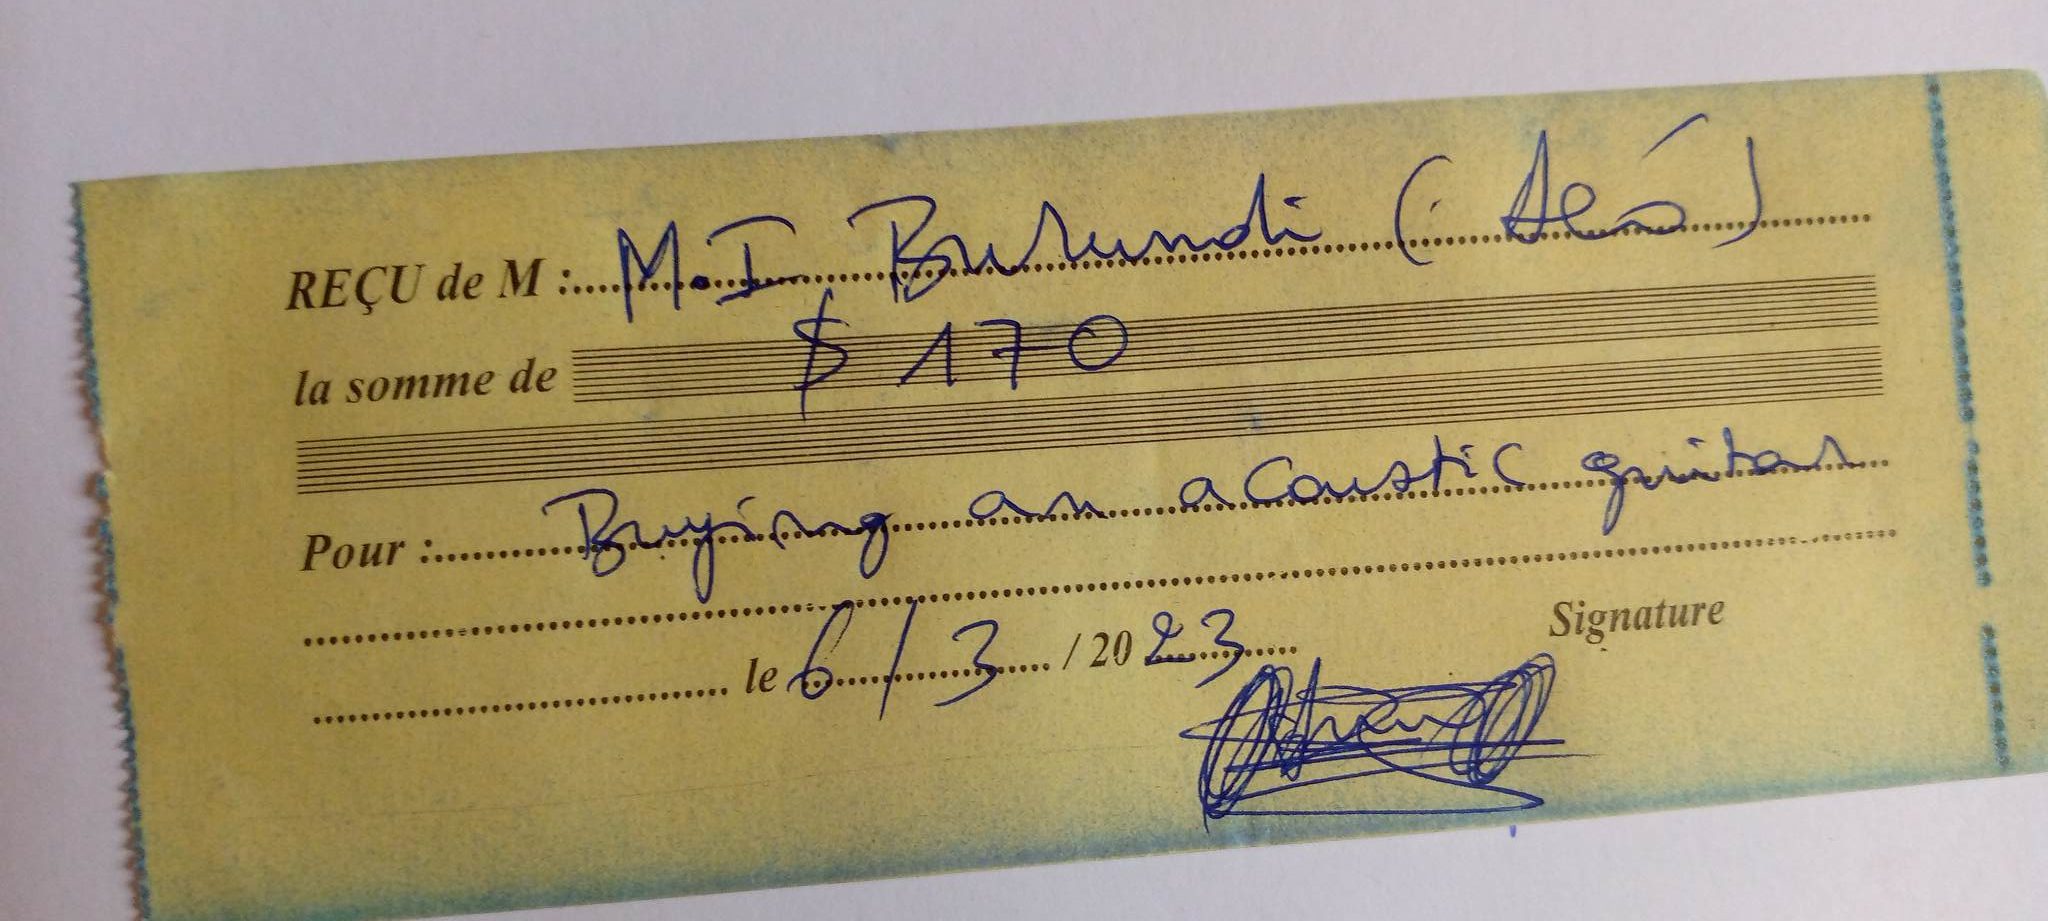 REÇU de M : M.I Burundi (
la somme de $ 170
Pour : Buying an acoustic guitar
le 6/3 / 2023
Signature